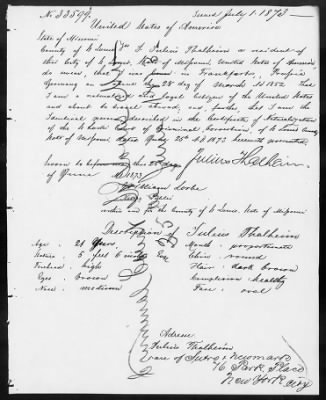 No. 33599. Issued July 1. 1873
United States of America
State of Missouri
County of St Louis I Julius Thalheim a resident of
this City of St. Louis, State of Missouri, United States of America,
do swear, that I was born in Frankfort, Prussia
Germany on the 28 day of March 1852 that
I am a naturalized and legal citizen of the United States
and about to travel abroad, and further that I am the
identical person described in the Certificate of Naturalization
of the St Louis Court of Criminal Correction, of St Louis County
State of Missouri dated 1873 hereunto annexed
Julius Thalheim
Sworn to before me this day
of June 1873
William
within and for the County of St Louis, State of Missouri
Description of Julius Thalheim
Age 21 Years Mouth proportionate
Stature 5 feet 6 Chin round
Forehead high Hair dark brown
Eyes brown Complexion healthy
Nose medium Face oval
Adress
Julius Thalheim
care of Sutro & Newmark
76 Park Place
New York City